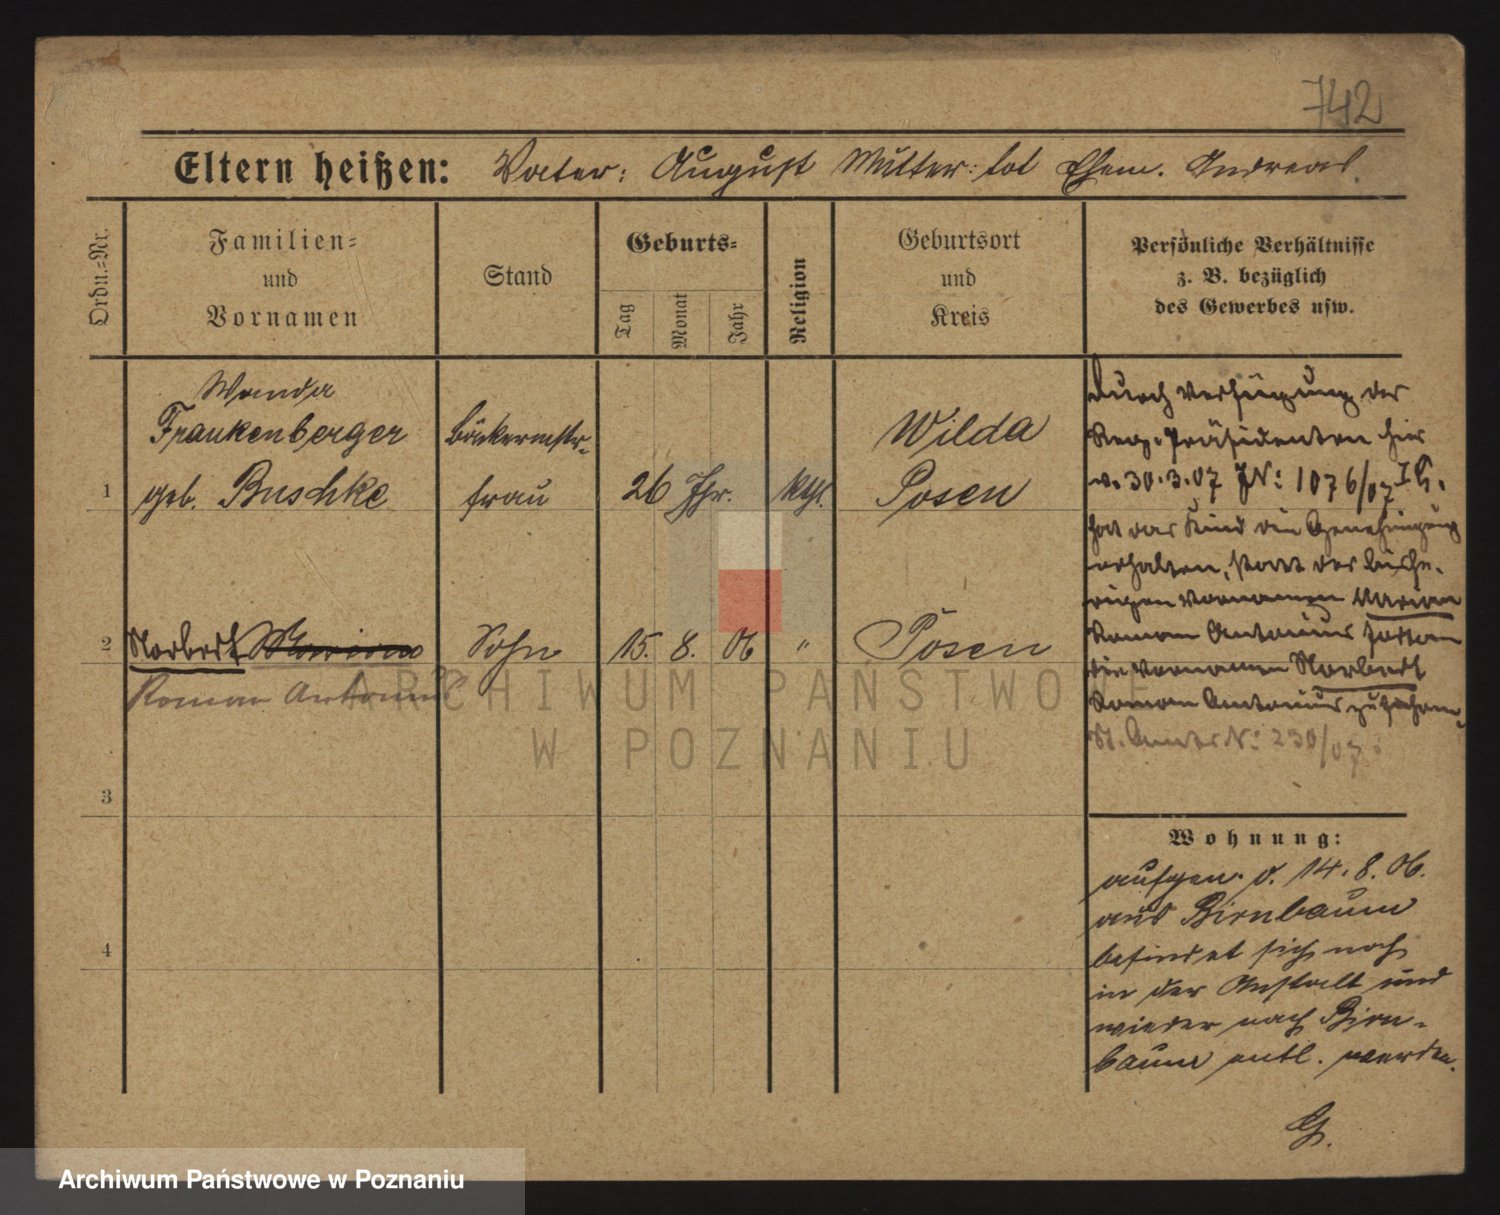 742
Eltern heißen: Vater: August Mutter: tot Ehem. Andreas.
Ordn.=Nr.
Familien=
und
Vornamen
Stand
Geburts=
Tag
Monat
Jahr
Religion
Geburtsort
und
Kreis
Persönliche Verhältnisse
z. B. bezüglich
des Gewerbes usw.
1
Wanda
Frankenberger
geb. Buschke
Bäckermstr.
frau
26 Jhr.
kth.
Wilda
Posen
2
Norbert Marian
Roman Antonius
Sohn
15. 8. 06
"
Posen
3
4
Durch Verfügung des
Reg. Präsidenten hier
v. 30.3.07 JN: 1076/07 I G.
hat das Kind die Genehmigung
erhalten, statt der bishe-
rigen Vornamen Marian
Roman Antonius fortan
die Vornamen Norbert
Roman Antonius zu führen.
St. Amt N: 230/07.
Wohnung:
aufgen. d. 14. 8. 06.
aus Birnbaum
befindet sich noch
in der Anstalt und
wieder nach Birn-
baum entl. werden.
G.
ARCHIWUM PAŃSTWOWE
W POZNANIU
Archiwum Państwowe w Poznaniu